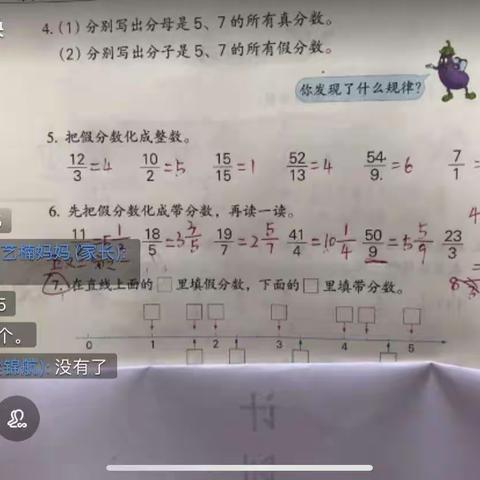 4. (1) 分别写出分母是 5、7 的所有真分数。
(2) 分别写出分子是 5、7 的所有假分数。
你发现了什么规律?
5. 把假分数化成整数。
12/3=4 10/2=5 15/15=1 52/13=4 54/9=6 7/1=
6. 先把假分数化成带分数，再读一读。
18/5=3 3/5 19/7=2 5/7 41/4=10 1/4 50/9=5 5/9 23/3
艺楠妈妈 (家长):
7. 在直线上面的 □ 里填假分数，下面的 □ 里填带分数。
个。
0 1 2 3 4 5
锦航): 没有了